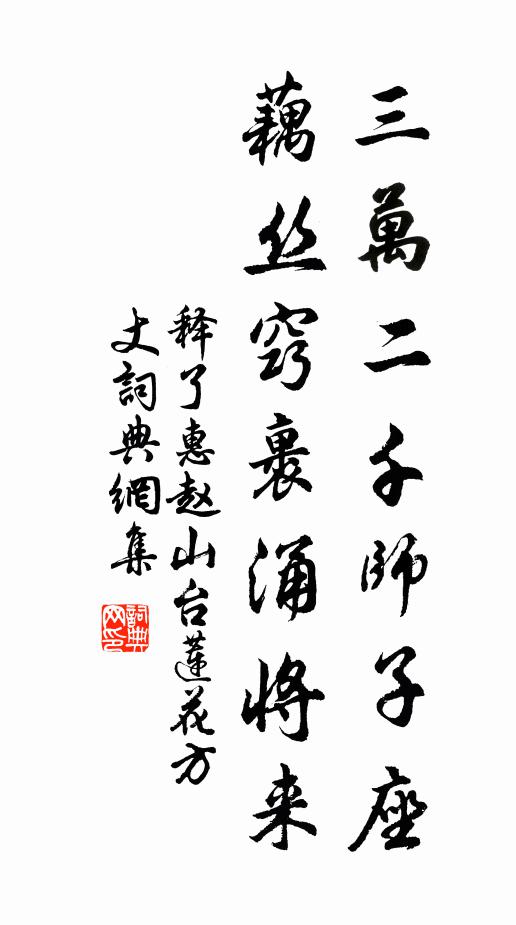 三萬二千師子座
藕丝竅裹涌將来
释了惠赵山台蓮花方
丈詞典網集
詞典
网印